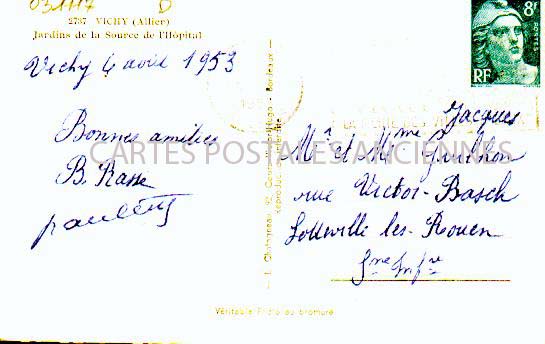 031117 D
2737 VICHY (Allier)
Jardins de la Source de l'Hôpital
Vichy 4 avril 1953
Bonnes amitiés
B. Rasse
8F
POSTES
RF
Jacques
Mr et Mme Guilhon
rue Victor-Basch
Sotteville les-Rouen
Sne Infre
CARTES POSTALES ANCIENNES
Véritable Photo au bromure